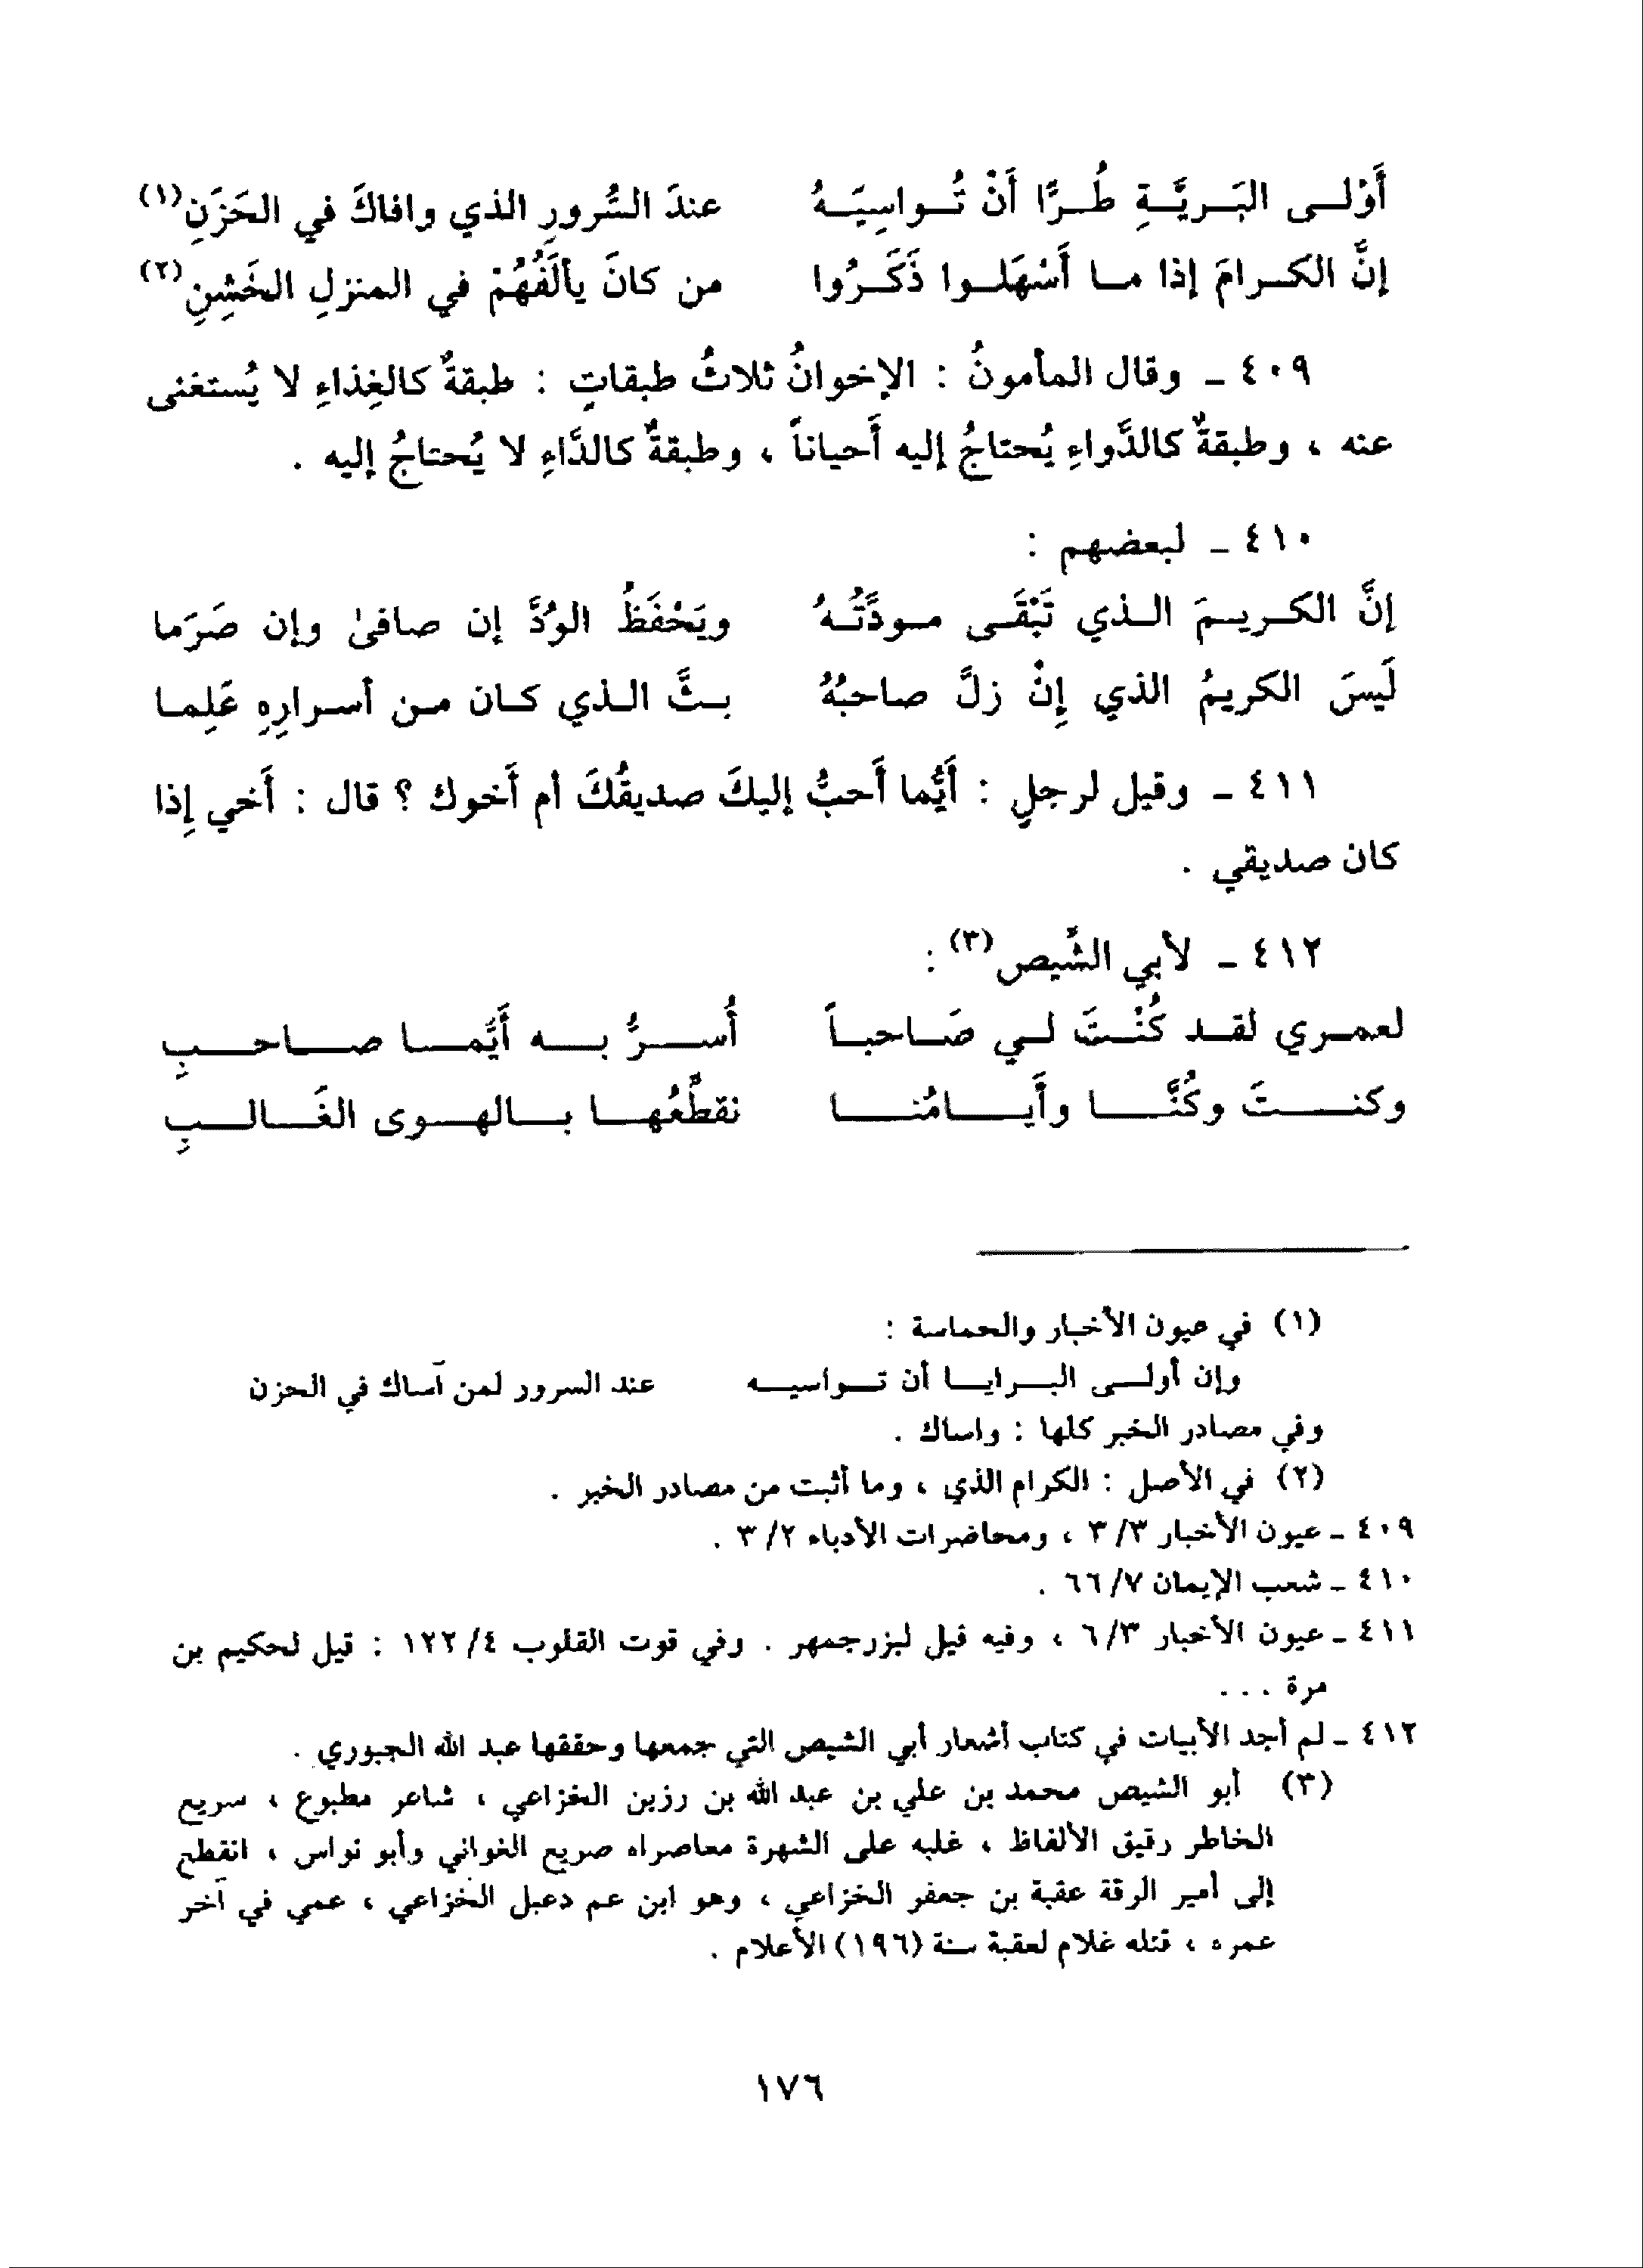 أَوْلى البَريَّةِ طُرًّا أَنْ تُواسِيَهُ عندَ السُّرورِ الذي وافاكَ في الحَزَنِ(١)
إنَّ الكرامَ إذا ما أَسْهَلوا ذَكَرُوا من كانَ يألَفُهُمْ في المنزلِ الخَشِنِ(٢)
٤٠٩ - وقال المأمونُ : الإخوانُ ثلاثُ طبقاتٍ : طبقةٌ كالغِذاءِ لا يُستغنى
عنه ، وطبقةٌ كالدَّواءِ يُحتاجُ إليه أَحياناً ، وطبقةٌ كالدَّاءِ لا يُحتاجُ إليه .
٤١٠ - لبعضهم :
إنَّ الكريمَ الذي تَبْقَى مودَّتُهُ ويَحْفَظُ الوُدَّ إن صافىٰ وإن صَرَما
لَيسَ الكريمُ الذي إِنْ زلَّ صاحبُهُ بثَّ الذي كان من أسرارِهِ عَلِما
٤١١ - وقيل لرجلٍ : أَيُّما أَحبُّ إليكَ صديقُكَ أم أَخوك ؟ قال : أَخي إِذا
كان صديقي .
٤١٢ - لأبي الشِّيص(٣) :
لعمري لقد كُنْتَ لي صَاحباً أُسرُّ به أَيَّما صاحبِ
وكنتَ وكُنَّا وأَيامُنا نقطِّعُها بالهوى الغَالبِ
(١) في عيون الأخبار والحماسة :
وإن أولى البرايا أن تواسيه عند السرور لمن آساك في الحزن
وفي مصادر الخبر كلها : واساك .
(٢) في الأصل : الكرام الذي ، وما أثبت من مصادر الخبر .
٤٠٩ - عيون الأخبار ٣/٣ ، ومحاضرات الأدباء ٣/٢ .
٤١٠ - شعب الإيمان ٦٦/٧ .
٤١١ - عيون الأخبار ٦/٣ ، وفيه قيل لبزرجمهر . وفي قوت القلوب ١٢٢/٤ : قيل لحكيم بن
مرة . . .
٤١٢ - لم أجد الأبيات في كتاب أشعار أبي الشيص التي جمعها وحققها عبد الله الجبوري .
(٣) أبو الشيص محمد بن علي بن عبد الله بن رزين الخزاعي ، شاعر مطبوع ، سريع
الخاطر رقيق الألفاظ ، غلبه على الشهرة معاصراه صريع الغواني وأبو نواس ، انقطع
إلى أمير الرقة عقبة بن جعفر الخزاعي ، وهو ابن عم دعبل الخزاعي ، عمي في آخر
عمره ، قتله غلام لعقبة سنة (١٩٦) الأعلام .
١٧٦